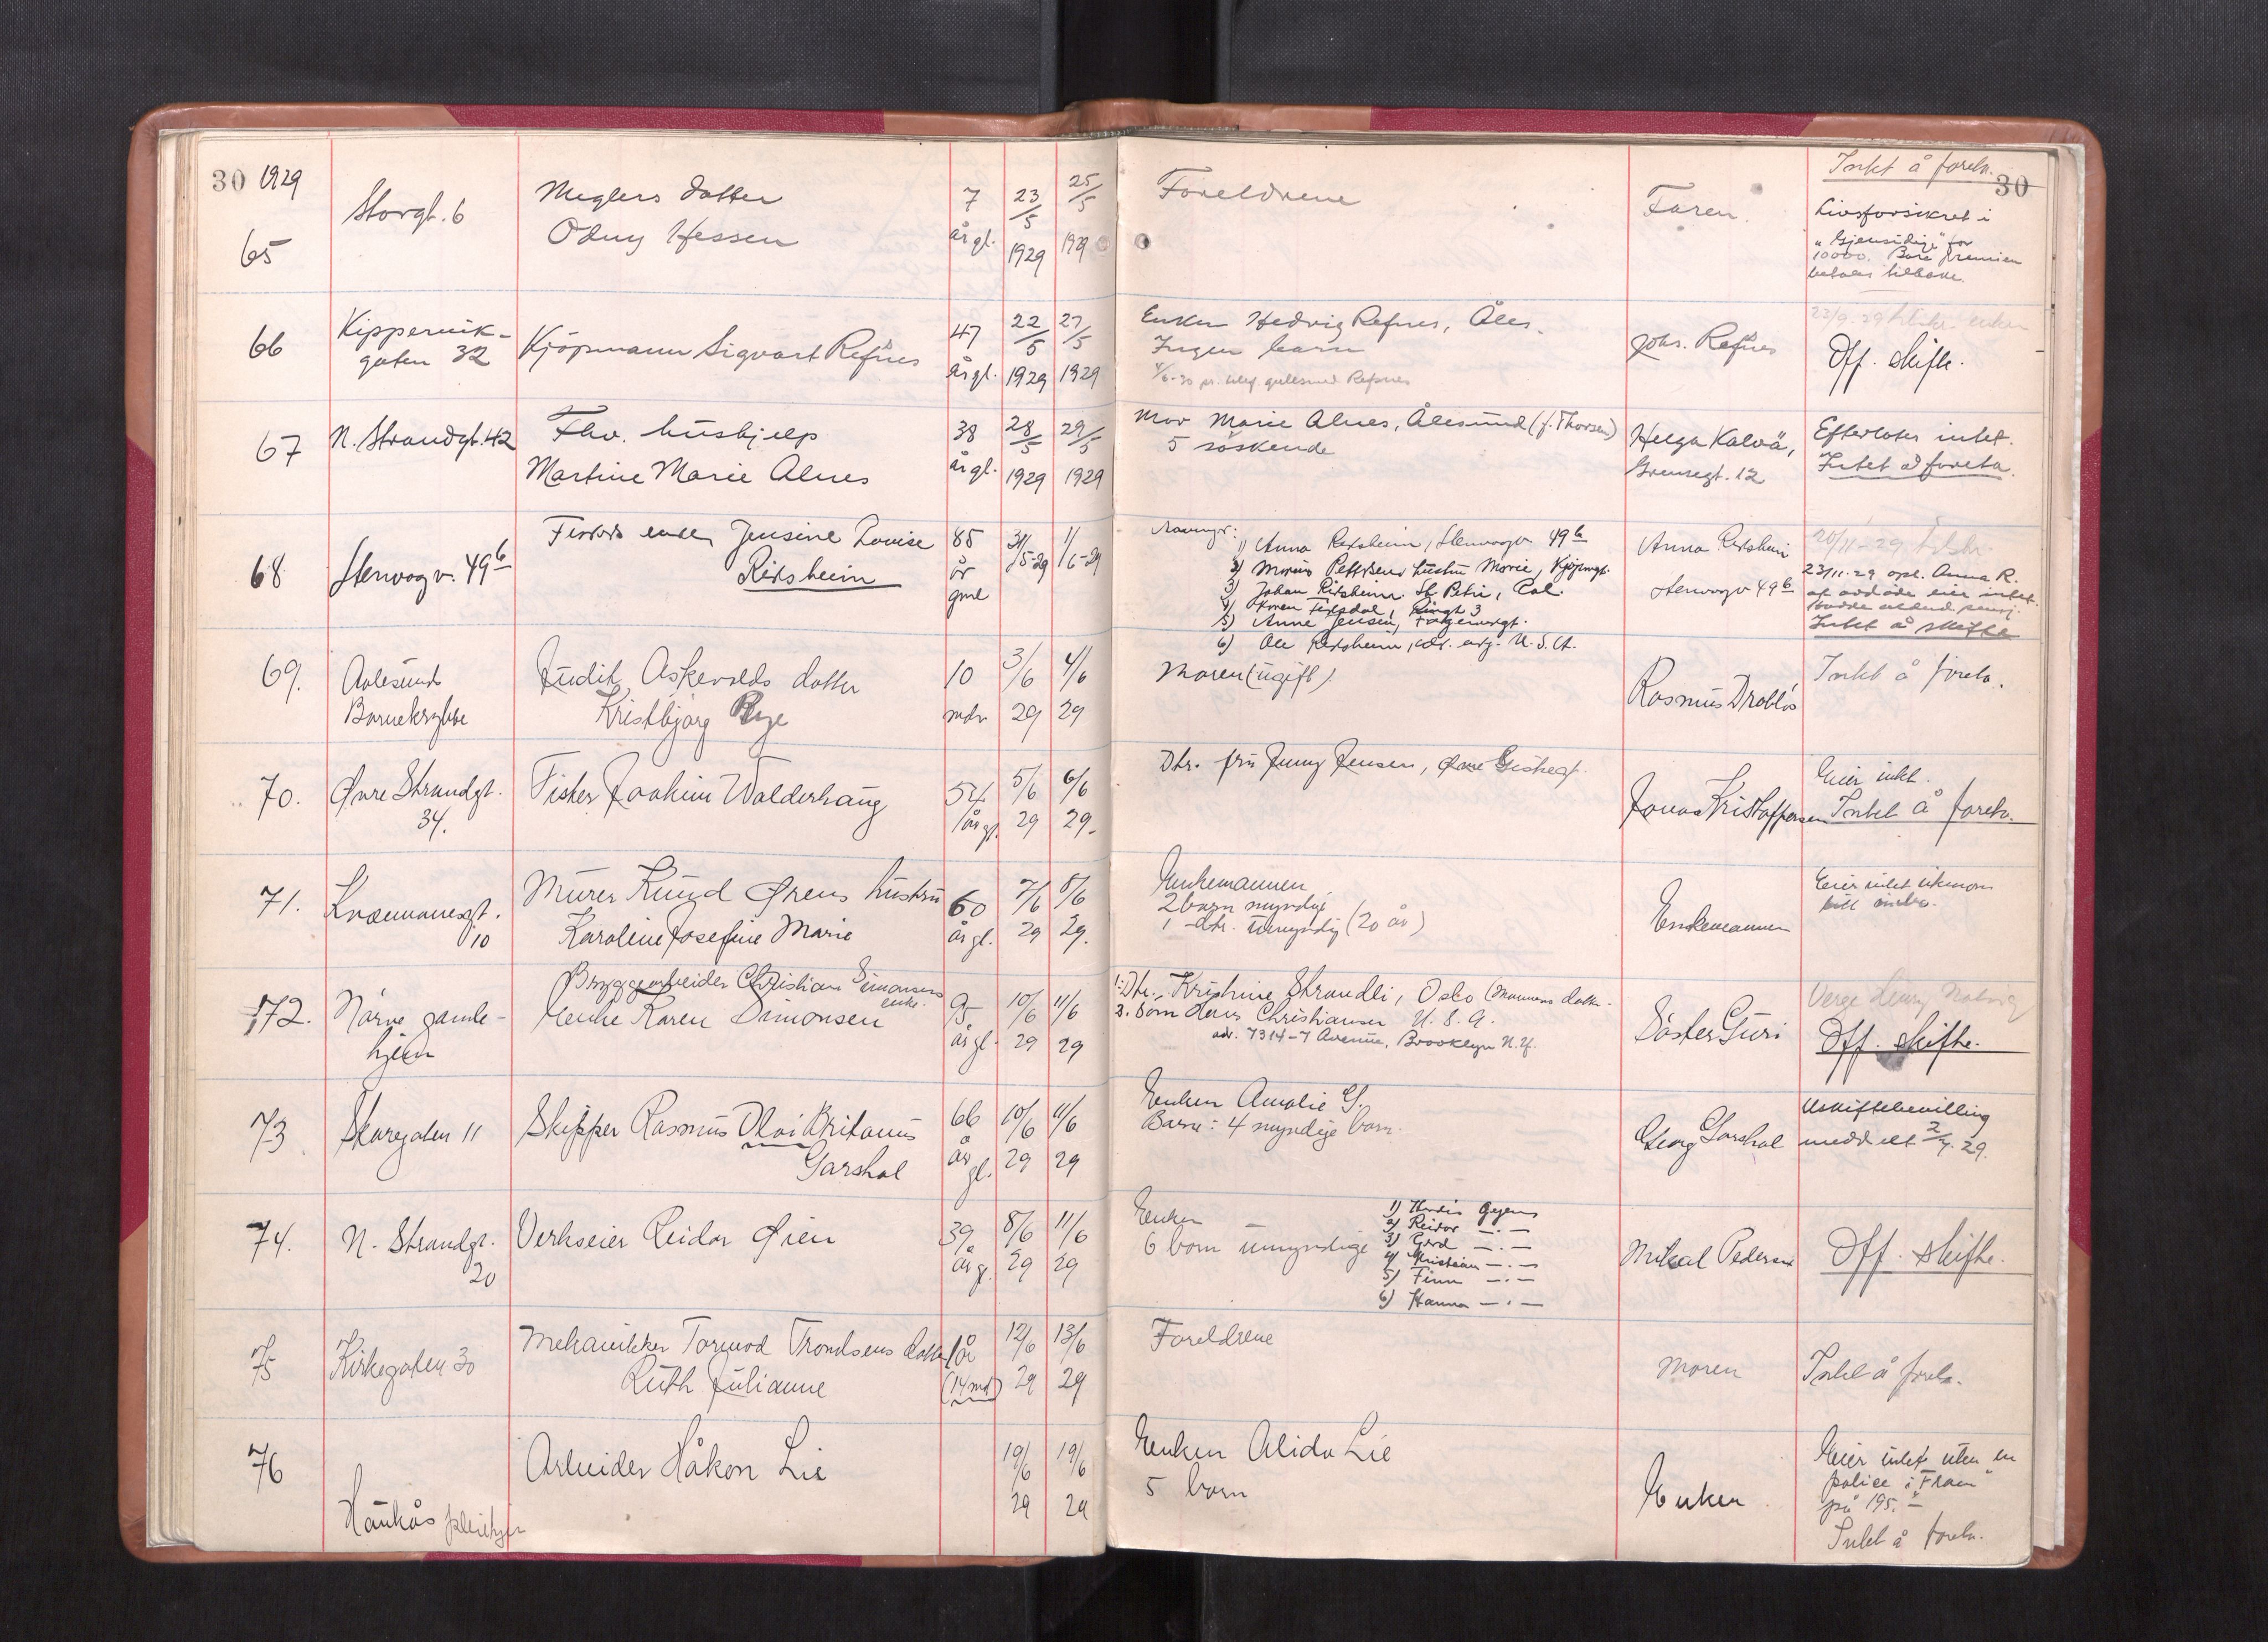 30 1929
65
Storgt. 6
Meglers datter
Odny Hessen
7
år gl.
23/5
1929
25/5
1929
Foreldrene
Faren
Intet å foreta.
30
Livsforsikret i
"Gjensidige" for
10000. Bare premien
betales tilbake.
66
Kippervik-
gaten 32
Kjöpmann Sigvart Refsnes
47
år gl.
22/5
1929
27/5
1929
Enken Hedvig Refsnes, Åles.
Ingen barn
Johs. Refsnes
22/9.29 enken
Off. skifte.
67
N. Strandgt. 42
Fhv. hushjelp
Martine Marie Alnes
38
år gl.
28/5
1929
29/5
1929
Mor Marie Alnes, Ålesund (f. Thorsen)
5 söskende
Helga Kalvö,
Grensegt. 12
Efterlater intet.
Intet å foreta.
68
Stenvågv. 49 b
enke Jensine Lovise
Rixsheim
85
år
gml
31/5-29
1/6-29
1) Anna Rixsheim, Stenvågv 49 b
2) hustru Marie,
3) Johan Rixsheim St. Petri, Cal.
4)
5) Anne Jensen,
6) Ole Rixsheim, U.S.A.
Anna Rixsheim
Stenvågv 49 b
20/11-29
23/11-29 opl. Anna R.
at avdöde eier intet.
Intet å skifte
69.
Aalesunds
Barnekrybbe
Judit Askevolds datter
Kristbjörg
10
mdr
3/6
29
4/6
29
Moren (ugift)
Rasmus Drabløs
Intet å foreta.
70.
Øvre Strandgt.
34.
Fisker Joakim Walderhaug
54
år gl.
5/6
29
6/6
29.
Dtr. fru Jenny Jensen,
Jonas Kristoffersen
Eier intet.
Intet å foreta.
71.
10
Murer Knud Ørens hustru
Karoline Josefine Marie
60
år gl.
7/6
29
8/6
29.
Enkemannen
2 barn myndig
1 dtr. umyndig (20 år)
Enkemannen
Eier intet utenom
litt innbo.
72.
Nörve gamle-
hjem
Bryggearbeider Christian Simonsens
enke
Karen Simonsen
95
år gl
10/6
29
11/6
29
1. Dtr. Kristine Strandli, Oslo (Mannens datter
2. Sön Christiansen U.S.A.
adr. 7314-7 Avenue, Brooklyn N.Y.
Söster Guri
Verge Henry
Off. skifte.
73
Skaregaten 11
Skipper Rasmus Olai Britanus
Garshol
66
år
gl.
10/6
29
11/6
29
Enken Amalie G.
Barn: 4 myndige barn.
Georg Garshol
Uskiftebevilling
meddelt 2/7. 29.
74.
N. Strandgt.
20
Verkseier Reidar Øien
39
år g.
8/6
29
11/6
29
Enken
6 barn umyndige
1)
2) Reidar — . —
3) Gerd — . —
4) Kristian — . —
5) Finn — . —
6) Hanna — . —
Mikael Pedersen
Off. skifte.
75
Kirkegaten 30
Mekanikker Tormod Trondsens datter
Ruth Julianne
1 år
(14 md)
12/6
29
13/6
29
Foreldrene
Moren
Intet å foreta.
76
Haukås pleiehjem
Arbeider Håkon Lie
19/6
29
19/6
29
Enken Alida Lie
5 barn
Enken
Eier intet uten en
police i "Fram"
på 195.-
Intet å foreta.